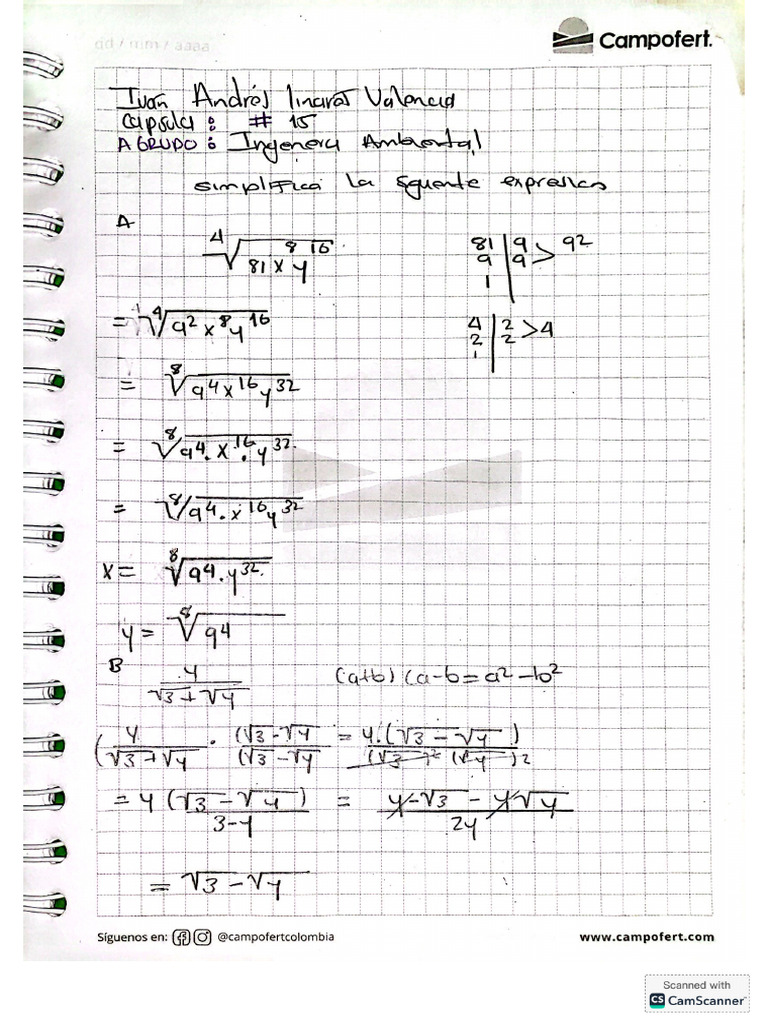 dd / mm / aaaa
Campofert.
Iván Andrés linares Valencia
capsula: # 15
AGRUPO: Ingeneria Ambiental
simplifica la siguente expresion
A
⁴√81x⁸y¹⁶
81 | 9 > 9²
9 | 9
1
= ⁴√9²x⁸y¹⁶
4 | 2 > 4
2 | 2
1
= ⁸√9⁴x¹⁶y³²
= ⁸√9⁴.x¹⁶.y³²
= ⁸√9⁴.x¹⁶y³²
x = ⁸√9⁴.y³².
y = ⁸√9⁴
B
y / √3+√y
(a+b)(a-b = a²-b²
(y / √3+√y . (√3-√y / (√3-√y = y.(√3-√y) / (√3)² (√y)²
= y(√3-√y) / 3-y = y-√3-y√y / 2y
= √3-√y
Síguenos en: @campofertcolombia
www.campofert.com
Scanned with
CS CamScanner